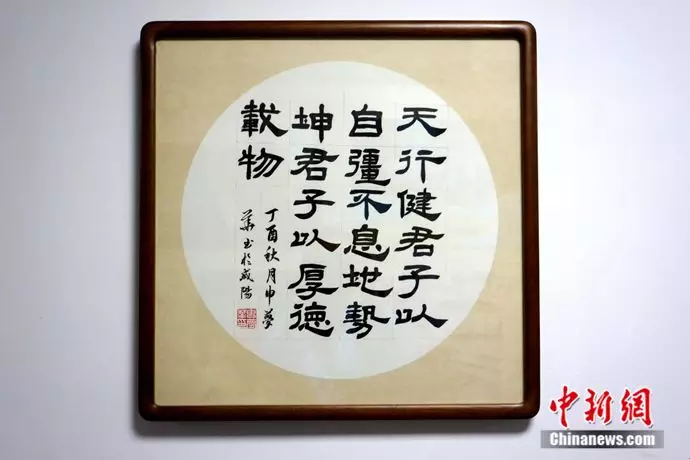 天行健君子以
自彊不息地势
坤君子以厚德
載物
丁酉秋月申夢
華书於咸陽
中新網
Chinanews.com